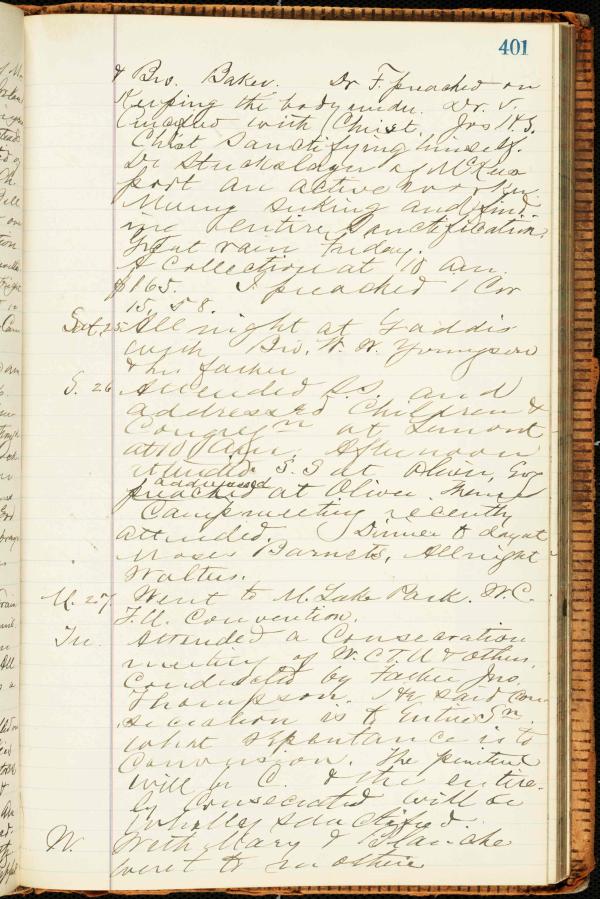 401
& Bro. Baker. Dr F. preached on
Keeping the body under. Dr. V.
Crucified with Christ. Jos
Christ sanctifying himself.
Dr. of McKees
port an active worker.
Many seeking and find-
ing entire sanctification.
Great rain Friday.
A Collection at 10 am.
$165. I preached 1 Cor
15, 58.
Sat. 25 All night at Gaddis
with Bro. W. W. Youngson
& his father
S. 26 Attended S.S. and
addressed Children &
Congregn at Lemont
at 10 1/2 am. Afternoon
attended S.S at Oliver, Evg
addressed
preached at Oliver. Theme
Campmeeting recently
attended. Dinner to day at
Moses Barnets, All night
Walters.
M. 27. Went to M. Lake Park. W.C.
T.U. Convention.
Tu. Attended a Consecration
meeting of W.C.T.U & others.
Conducted by Father Jno.
Thompson. He said Con
secration is to Entire Sn
what repentance is to
Conversion. The penitent
will be C. & the entire-
ly consecrated will be
wholly sanctified.
W. With Mary & Blanche
went to mother